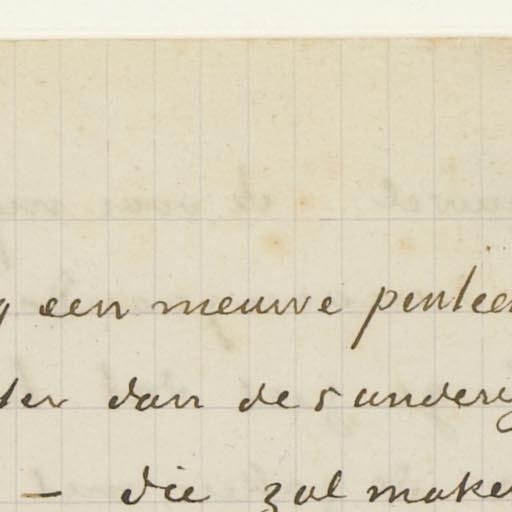 een nieuwe penteek
ter dan de 5 andere
— die zal maken